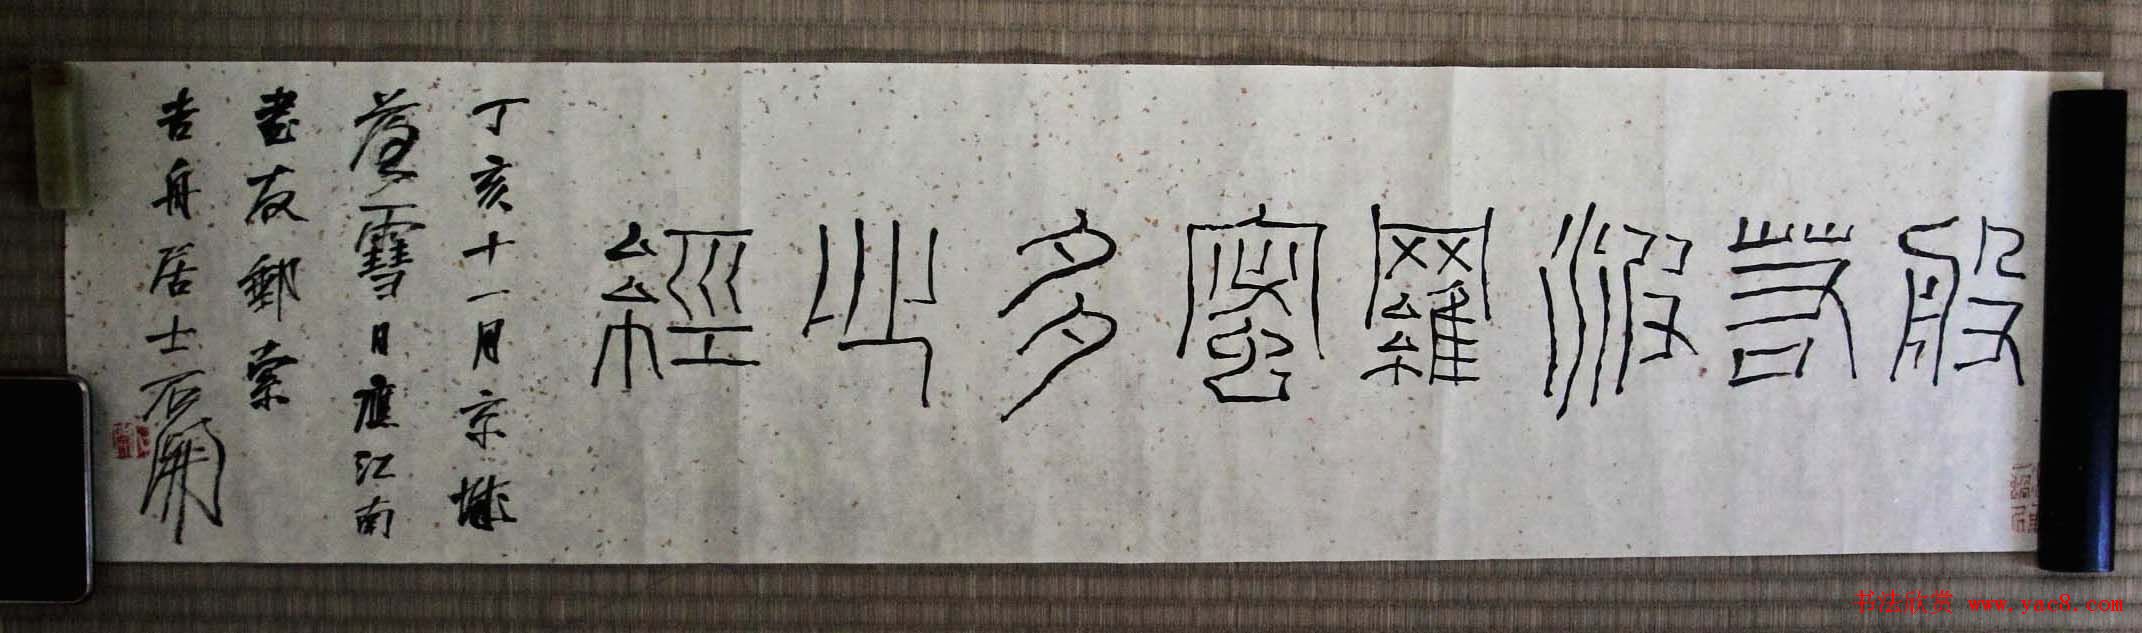 般若波羅蜜多心經
丁亥十一月京城
落雪日應江南
書友郵索
吉舟居士石開
书法欣赏 www.yac8.com